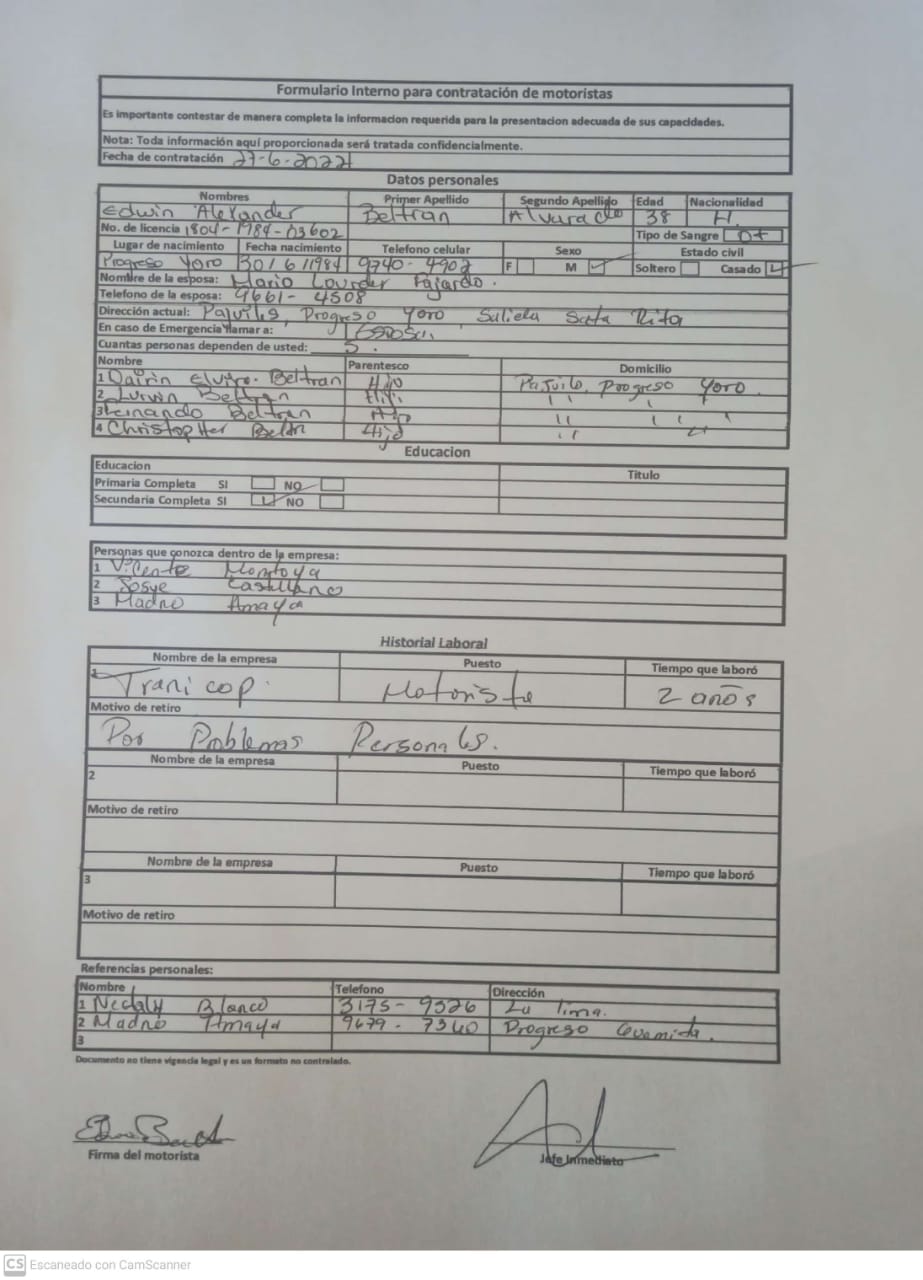 Formulario Interno para contratación de motoristas
Es importante contestar de manera completa la informacion requerida para la presentacion adecuada de sus capacidades.
Nota: Toda información aquí proporcionada será tratada confidencialmente.
Fecha de contratación 27-6-2022
Datos personales
Nombres Primer Apellido Segundo Apellido Edad Nacionalidad
Edwin Alexander Beltran Alvarado 38 H.
No. de licencia 1804-1984-03602 Tipo de Sangre O+
Lugar de nacimiento Fecha nacimiento Telefono celular Sexo Estado civil
Progreso Yoro 30/6/1984 9740-4902 F M Soltero Casado
Nombre de la esposa: Lourdes Fajardo.
Telefono de la esposa: 9661-4508
Dirección actual: Pajuiles, Progreso Yoro Santa Rita
En caso de Emergencia llamar a: Esposa.
Cuantas personas dependen de usted: 5.
Nombre Parentesco Domicilio
1 Beltran Hijo Pajuile, Progreso Yoro.
2 Beltran
3 Fernando Beltran Hijo " " "
4 Christopher Beltrn Hijo " "
Educacion
Educacion Titulo
Primaria Completa SI NO
Secundaria Completa SI NO
Personas que conozca dentro de la empresa:
1 Vicente Montoya
2 Josye Castellano
3 Madno Amaya
Historial Laboral
Nombre de la empresa Puesto Tiempo que laboró
1 Tranicop. Motorista 2 años
Motivo de retiro
Por Problemas Personales.
Nombre de la empresa Puesto Tiempo que laboró
2
Motivo de retiro
Nombre de la empresa Puesto Tiempo que laboró
3
Motivo de retiro
Referencias personales:
Nombre Telefono Dirección
1 Nedaly Blanco 3175-9526 La Lima.
2 Madno Amaya 9679-7340 Progreso
3
Documento no tiene vigencia legal y es un formato no contralado.
Firma del motorista Jefe Inmediato
CS Escaneado con CamScanner